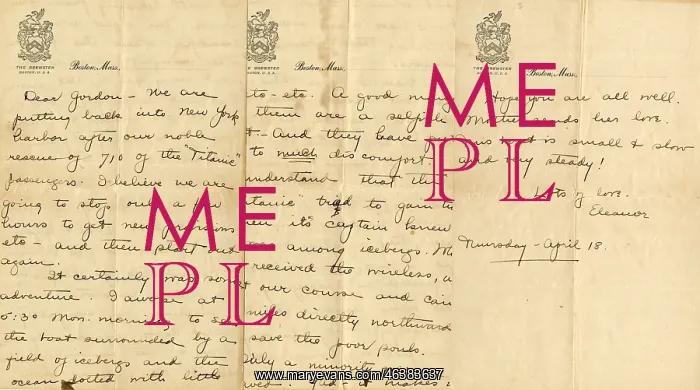 THE BREWSTER
BOSTON, U.S.A.
Boston, Mass.
Dear Gordon - We are
putting back into New York
harbor after our noble
rescue of 710 of the "Titanic"
passengers. I believe we are
going to stop only a few
hours to get new provisions
etc - and then start out
again.
It certainly was some
adventure. I awoke at
5:30 Mon. morning to see
the boat surrounded by a
field of icebergs and the
ocean dotted with little
THE BREWSTER
BOSTON, U.S.A.
Boston, Mass.
etc. A good many
them are a selfish
And they have
to much discomfort.
understand that the
tried to gain
its captain knew
among icebergs. We
received the wireless,
our course and
miles directly northward
save the poor souls.
a minority
makes
THE BREWSTER
BOSTON, U.S.A.
Boston, Mass.
Hope you are all well.
Mother sends her love.
is small & slow
and very steady!
Lots of love.
Eleanor
Thursday - April 18.
ME
PL
ME
PL
www.maryevans.com/46389637